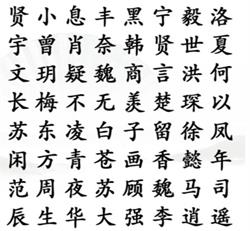 贤小息丰黑宁毅洛
宇曾肖奈韩贤世夏
文玥疑魏商言洪何
长梅不无美楚琛以
苏东凌白子留徐凤
闲方青苍画香懿年
范周夜苏顾魏马司
辰生华大强李逍遥